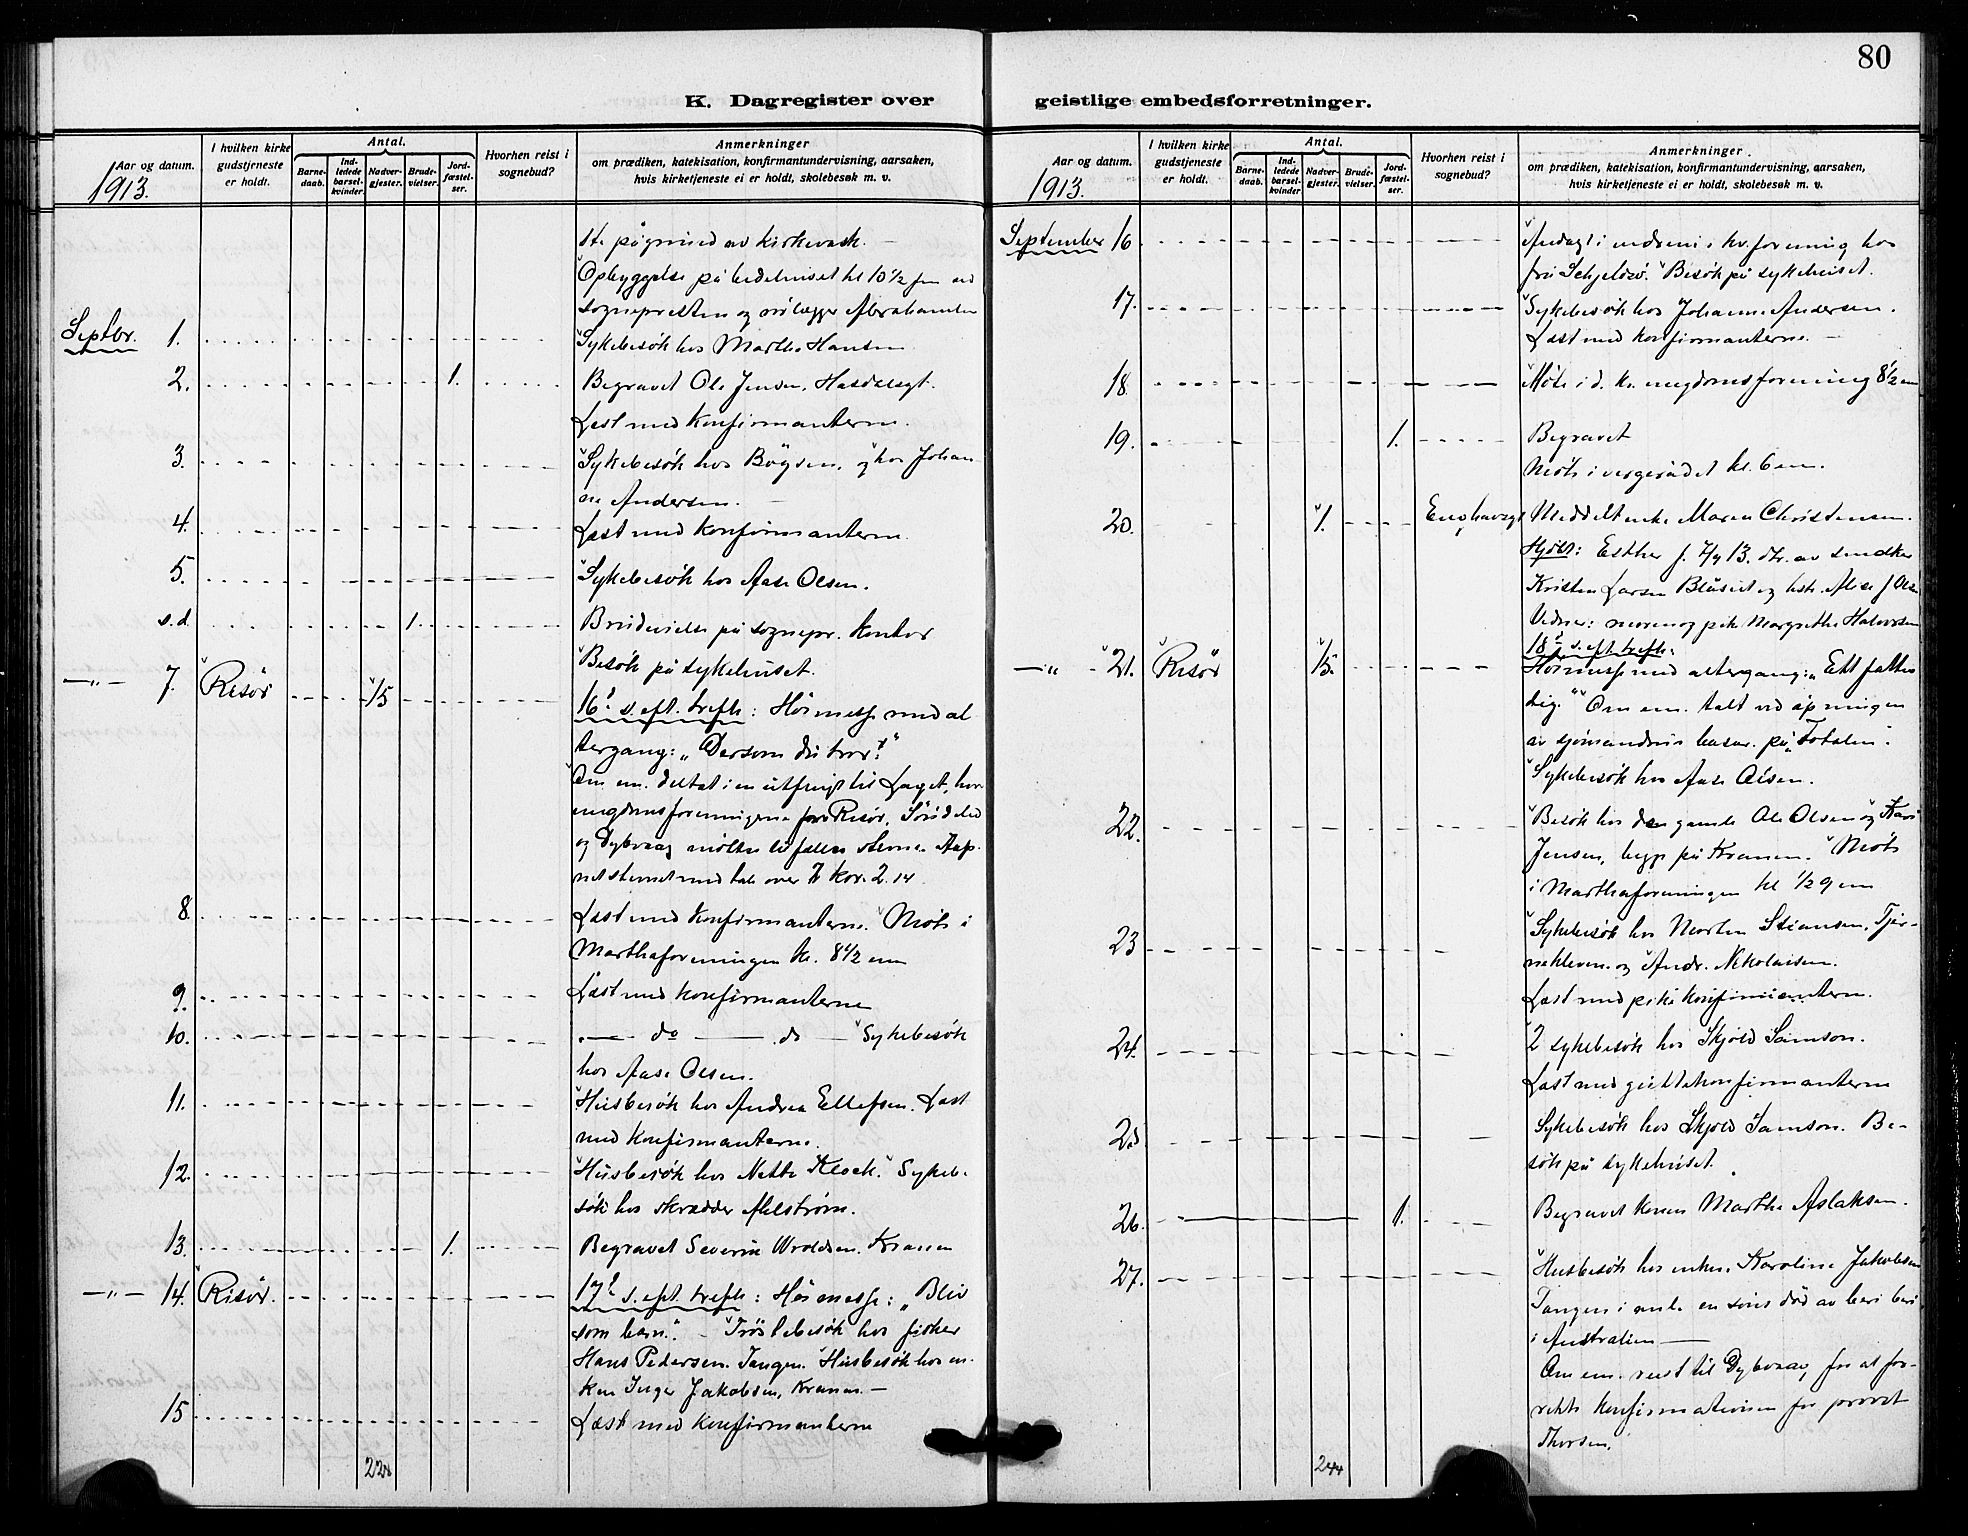 80
K. Dagregister over
geistlige embedsforretninger.
Aar og datum.
1913.
I hvilken kirke gudstjeneste er holdt.
Antal.
Barne-daab.
Ind-ledede barsel-kvinder.
Nadver-gjester.
Brude-vielser.
Jord-fæstel-ser.
Hvorhen reist i sognebud?
Anmerkninger
om prædiken, katekisation, konfirmantundervisning, aarsaken,
hvis kirketjeneste ei er holdt, skolebesøk m. v.
på grund av kirkevask.
Opbyggelse på bedehuset kl 10 1/2 fm ved
sognepresten og Abrahamsen
Septbr. 1. Sykebesök hos Marthe Hansen
2. 1. Begravet Ole Jensen, Hasdalsgt.
Læst med konfirmanterne.
3. Sykebesök hos Bögsen, og hos Johan
ne Andersen.
4. Læst med konfirmanterne.
5. Sykebesök hos Aase Olsen.
s.d. 1. Brudevielse på sognepr. kontor
Besök på sykehuset.
7. Risör 15 16de s. eft. trefh: Höimesse med al
tergang: „Dersom du tror!"
Om em. deltat i en utflugt til Laget, hvor
ungdomsforeningene fra Risör, Söndeled
og Dybvaag mötte til fælles stevne. Aap-
net stevnet med tale over 2 Kor. 2.14
8. Læst med konfirmanterne. Möte i
Marthaforeningen kl. 8 1/2 em
9. Læst med konfirmanterne
10. do do Sykebesök
hos Aase Olsen.
11. Husbesök hos Andrea Ellefsen. Læst
med konfirmanterne.
12. Husbesök hos Nette Klock. Sykeb.
sök hos skrædder Ahlström.
13. 1. Begravet Severin Wroldsen. Kranen
14. Risör. 17de s. eft. trefh: Höimesse: „Bliv
som barn." Tröstebesök hos fisker
Hans Pedersen. Tangen. Husbesök hos en-
ken Inger Jakobsen, Kranen.
15 Læst med konfirmanterne
224
Aar og datum.
1913.
I hvilken kirke gudstjeneste er holdt.
Antal.
Barne-daab.
Ind-ledede barsel-kvinder.
Nadver-gjester.
Brude-vielser.
Jord-fæstel-ser.
Hvorhen reist i sognebud?
Anmerkninger.
om prædiken, katekisation, konfirmantundervisning, aarsaken,
hvis kirketjeneste ei er holdt, skolebesøk m. v.
September 16 Andagt i indremis. kv. forening hos
fru Schjelderup. Besök på sykehuset.
17. Sykebesök hos Johanne Andersen.
Læst med konfirmanterne.
18 Möte i d. k. ungdomsforening 8 1/2 em
19. 1. Begravet
Möte i vergerådet kl. 6 em.
20. 1. Enghavegt Meddelt enke Maren Christensen.
Hjdbt: Esther f. 7/9 13. dtr. av snedker
Kristen Larsen Blåsut og hstr. Alise f Olsen
Vidner: moren og pike Margrethe Halvorsen
18de s. eft. trefh:
21. Risör 15. Höimesse med altergang: „Ett fattes
dig." Om em. talt ved åpningen
av sjömandsmis. basar. på „Totalen".
Sykebesök hos Aase Olsen.
22. Besök hos den gamle Ole Olsen og Kari
Jensen, begge på Kranen. Möte
i Marthaforeningen kl 1/2 9 em
23 Sykebesök hos Morten Stiansen, Tjær-
nekleven og Andr. Nikolaisen.
Læst med pikekonfirmanterne.
24. 2 sykebesök hos Skjold Samson.
Læst med guttekonfirmanterne
25 Sykebesök hos Skjold Samson. Be-
sök på sykehuset.
26. 1. Begravet konen Marthe Aslaksen.
27. Husbesök hos enken Karoline Jakobsen
Tangen i anl. en söns död av beri beri
i Australien
Om em. reist til Dybvaag for at for-
rette konfirmationen for provst
Thorsen.
244